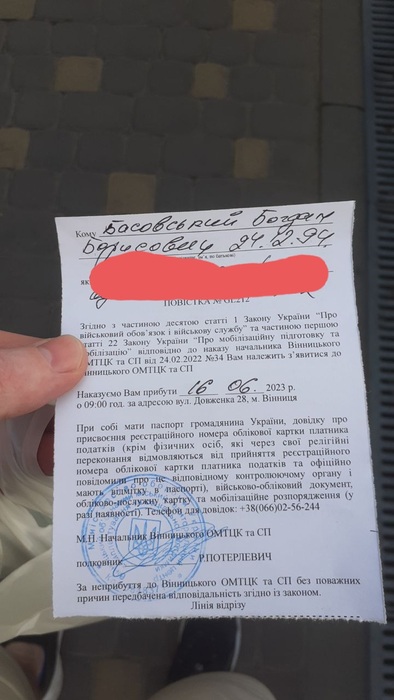 Кому Басовський Богдан
Борисович 24.12.94.
ПОВІСТКА №
Згідно з частиною десятою статті 1 Закону України "Про
військовий обов'язок і військову службу" та частиною першою
статті 22 Закону України "Про мобілізаційну підготовку та
мобілізацію" відповідно до наказу начальника Вінницького
ОМТЦК та СП від 24.02.2022 №34 Вам належить з'явитися до
Вінницького ОМТЦК та СП
Наказуємо Вам прибути 16 06. 2023 р.
о 09:00 год. за адресою вул. Довженка 28, м. Вінниця
При собі мати паспорт громадянина України, довідку про
присвоєння реєстраційного номера облікової картки платника
податків (крім фізичних осіб, які через свої релігійні
переконання відмовляються від прийняття реєстраційного
номера облікової картки платника податків та офіційно
повідомили про це відповідному контролюючому органу і
мають відмітку в паспорті), військово-обліковий документ,
обліково-послужну картку та мобілізаційне розпорядження (у
разі наявності). Телефон для довідок: +38(066)02-56-244
М.П. Начальник Вінницького ОМТЦК та СП
полковник Р.ПОТЕРЛЕВИЧ
За неприбуття до Вінницького ОМТЦК та СП без поважних
причин передбачена відповідальність згідно із законом.
Лінія відрізу